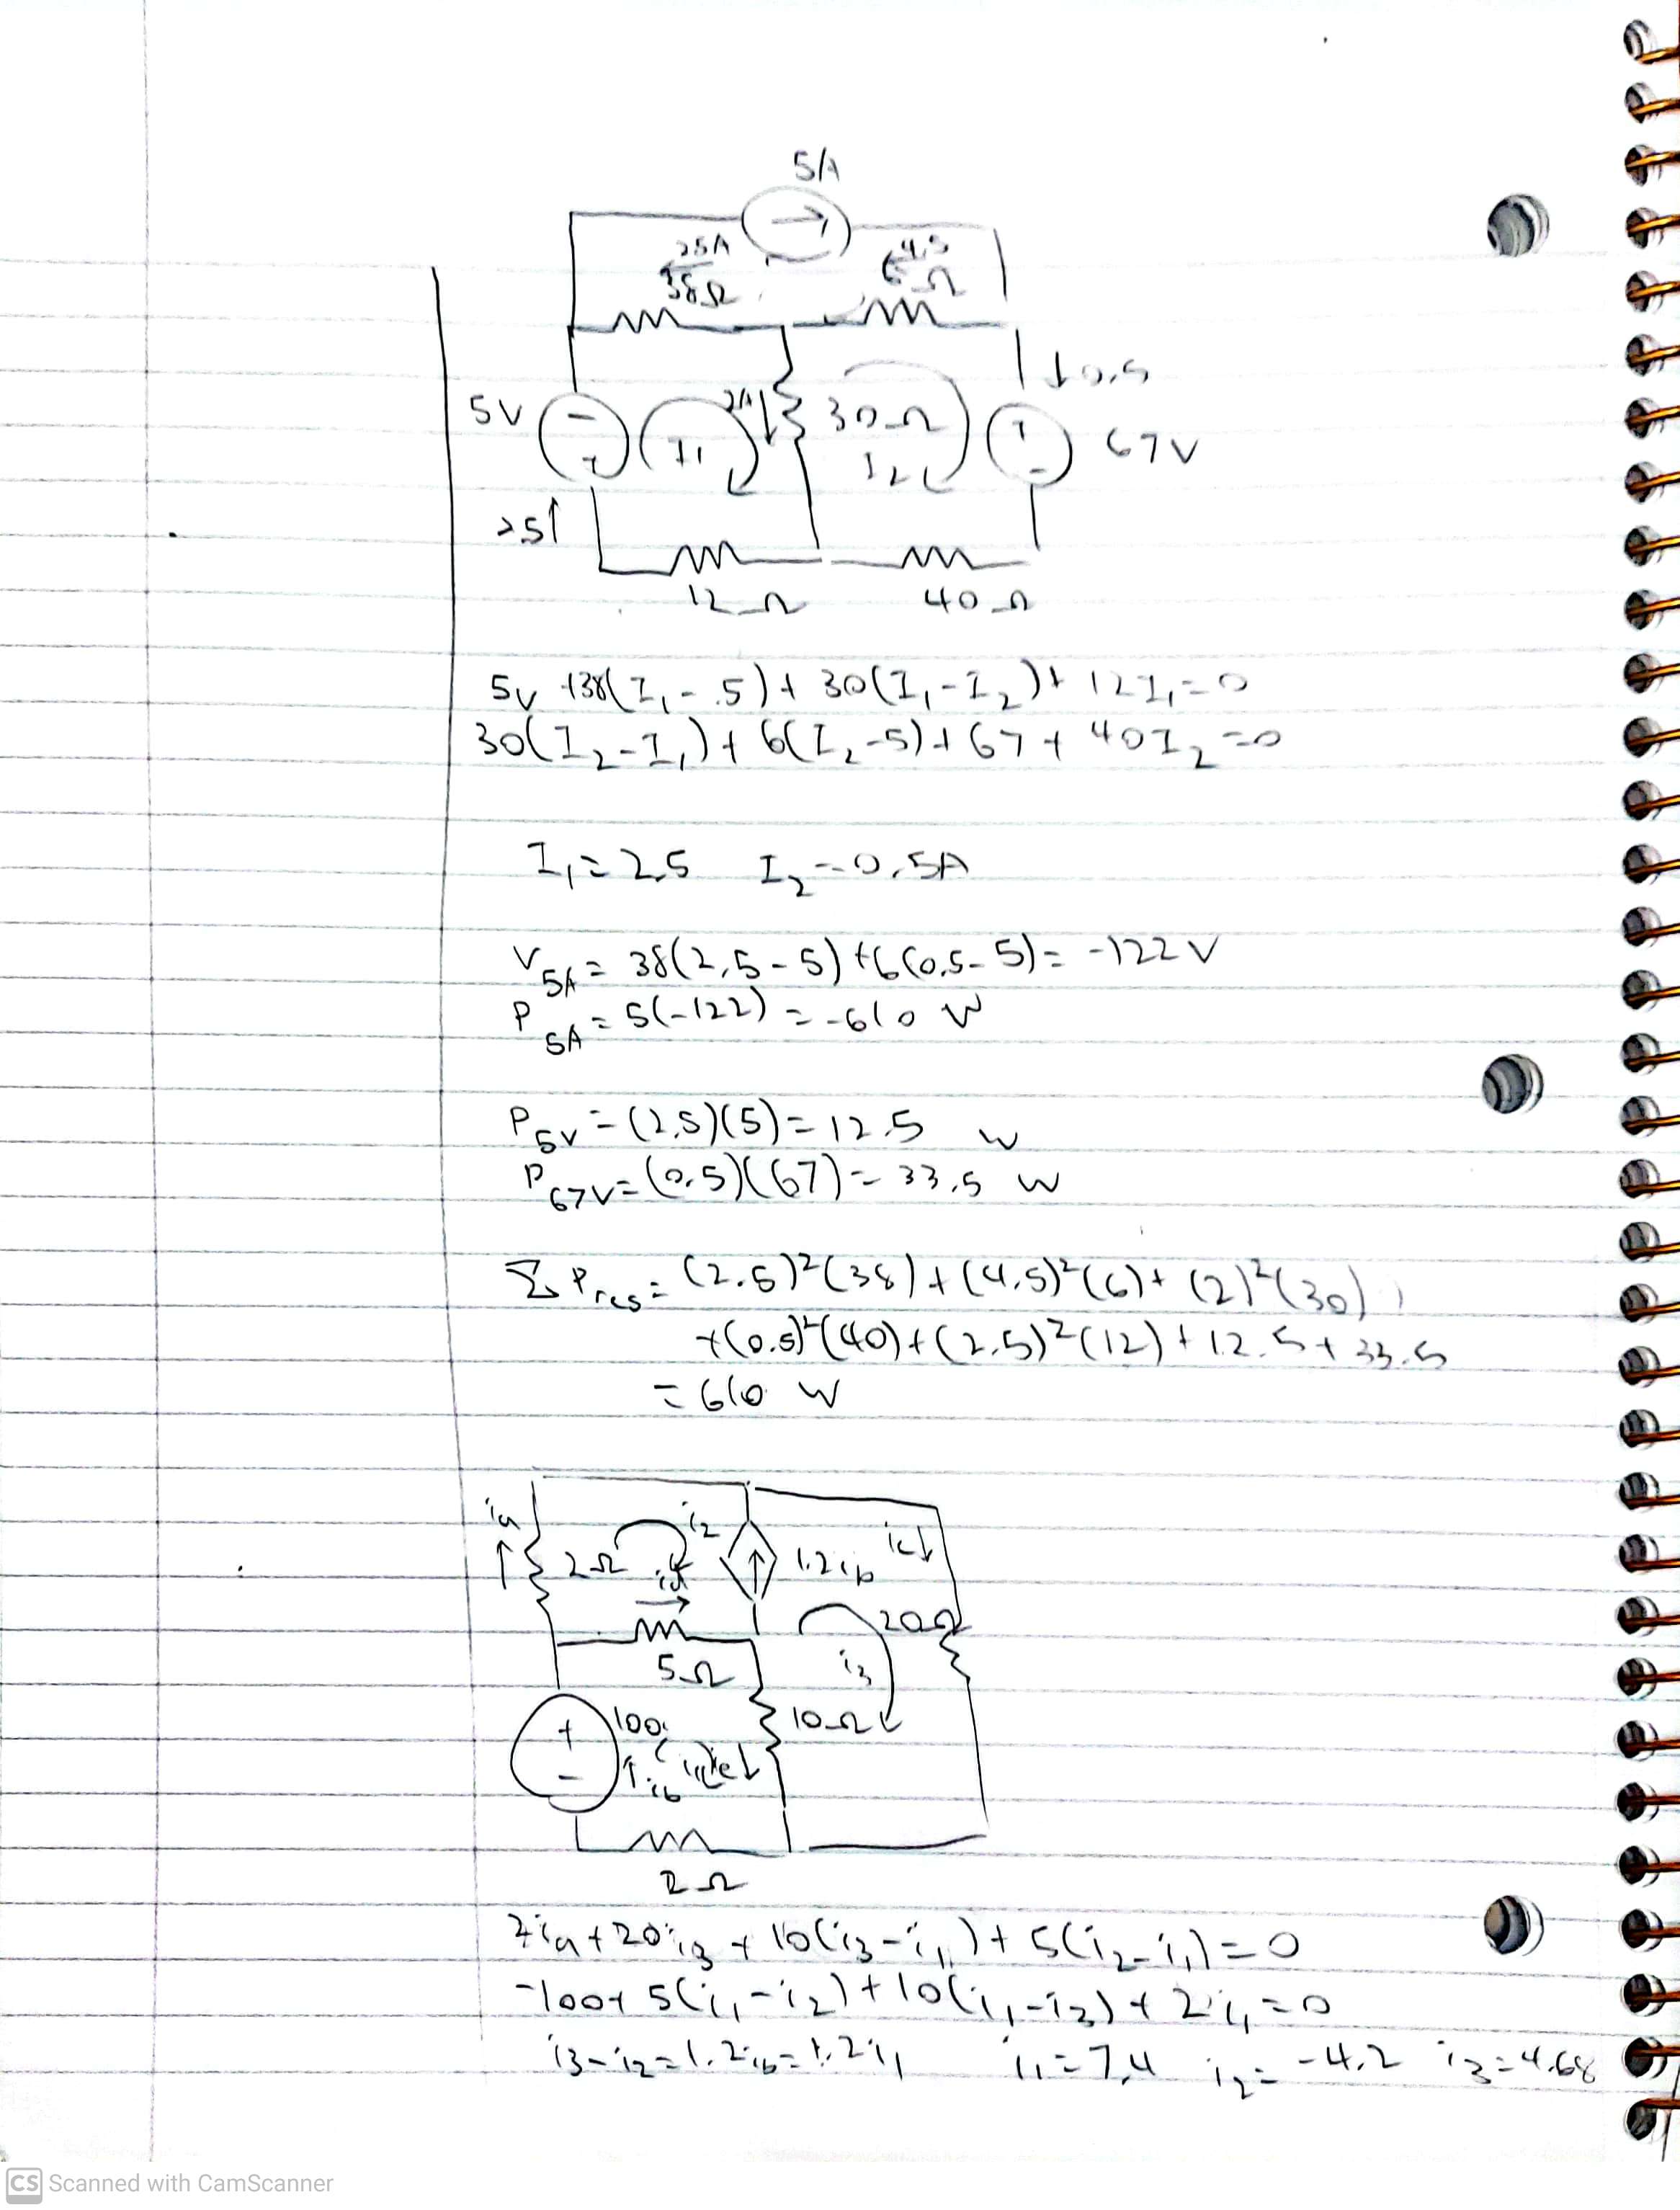 5A
25A
4.5
38Ω
6Ω
↓0.5
5V
I₁
2A↓
30Ω
I₂
67V
25↑
12Ω
40Ω
5v +38(I₁-.5)+30(I₁-I₂)+12I₁=0
30(I₂-I₁)+6(I₂-5)+67+40I₂=0
I₁=2,5 I₂=0,5A
V5A=38(2,5-5)+6(0,5-5)=-122V
P5A=5(-122)=-610 W
P5V=(2,5)(5)=12.5 W
P67V=(0,5)(67)=33,5 W
ΣPres=(2.5)²(38)+(4,5)²(6)+(2)²(30)
+(0.5)²(40)+(2,5)²(12)+12.5+33.5
=610 W
ia
2Ω
i₂
1.2ib
ic↓
id
20Ω
5Ω
i₃
10Ω
100
i₁
ie↓
↑ib
2Ω
2ia+20i₃+10(i₃-i₁)+5(i₂-i₁)=0
-100+5(i₁-i₂)+10(i₁-i₃)+2i₁=0
i₃-i₂=1.2ib=1.2i₁ i₁=7,4 i₂=-4,2 i₃=4.68
CS Scanned with CamScanner